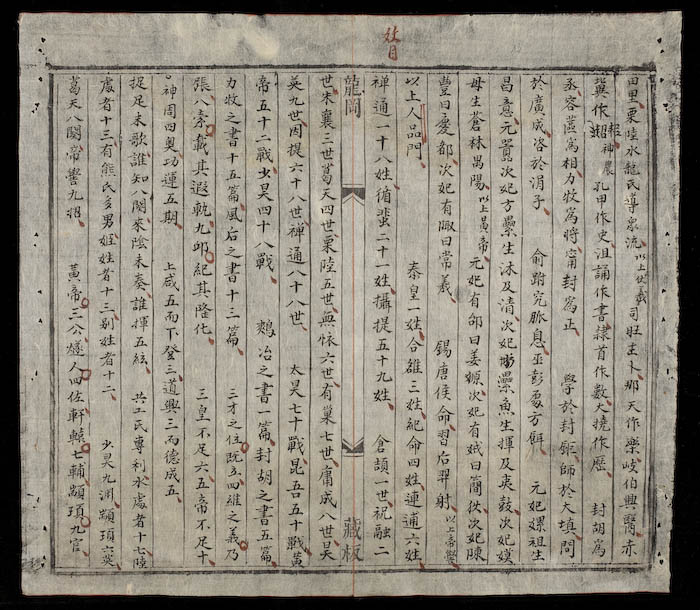 田里栗陸水龍氏導泉流以上伏羲 司旺主卜那天作樂岐伯興醫赤
作報神農 孔甲作史沮誦作書隸首作數大撓作歷 封胡為
丞容區為相力牧為將甯封為正 學於封鉅師於大填問
於廣成咨於涓子 俞跗究脈息巫彭處方餌 元妃嫘祖生
昌意元囂次妃方纍生沐及清次妃彤纍魚生揮及夷鼓次妃嫫
母生蒼林禺陽以上黃帝 元妃有邰曰姜嫄次妃有娀曰簡狄次妃陳
豐曰慶都次妃有娵曰常羲 錫唐侯命習后羿射以上帝嚳
以上人品門 泰皇一姓合雒三姓紀命四姓連通六姓
禪通一十八姓循蜚二十一姓攝提五十九姓 倉頡一世祝融二
龍岡 藏板
世朱襄三世葛天四世栗陸五世無懷六世有巢七世庸成八世昊
英九世因提六十八世禪通八十八世 太昊七十戰昆吾五十戰黃
帝五十二戰少昊四十八戰 鵊冶之書一篇封胡之書五篇
力牧之書十五篇風后之書十三篇 三才之位既立四維之義乃
張八索載其遐軌九邱紀其隆化 三皇不足六五帝不足十
神周四奥功運五期 上咸五而下登三道興三而德成五
捉足未歌誰知八闋來陰未奏誰揮五絃 共工氏專利水處者十七陸
處者十三有熊氏多男姬姓者十三别姓者十二 少昊九淵顓頊六英
葛天八闋帝嚳九招 黃帝三公燧人四佐軒轅七輔顓頊九官